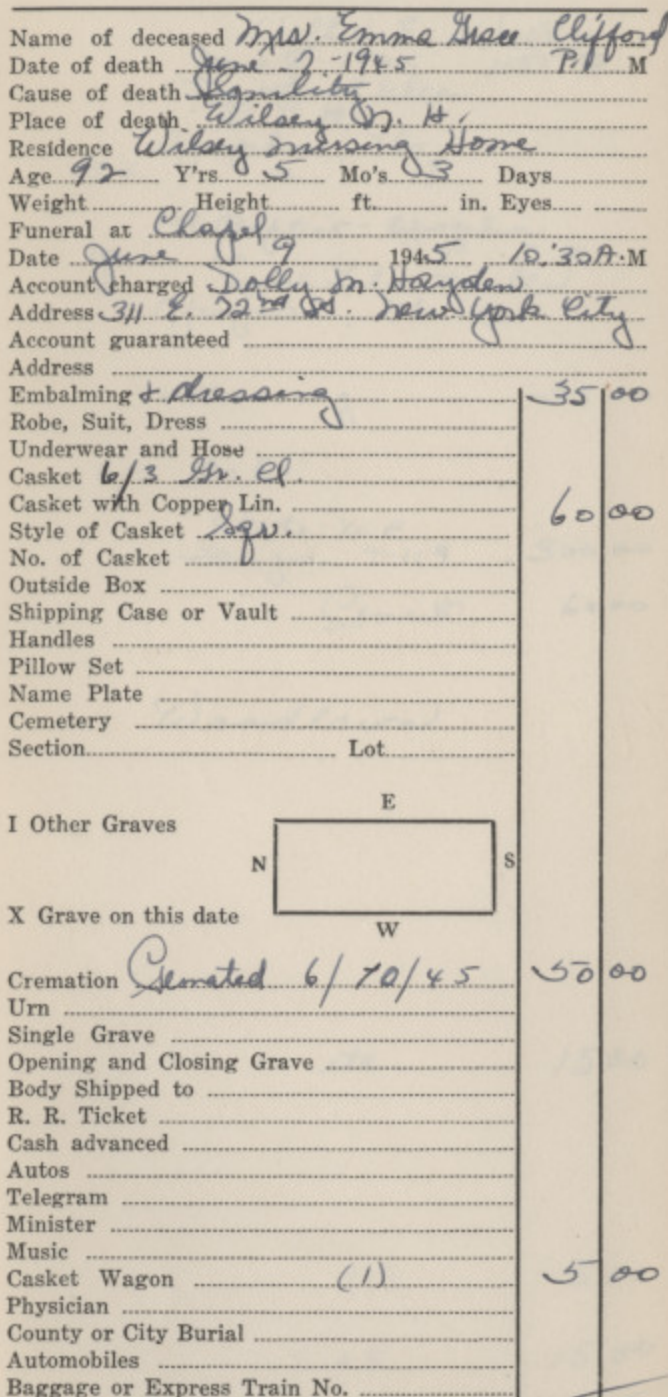 Name of deceased Mrs. Emma Grace Clifford
Date of death June 7-1945 P. M
Cause of death Senility
Place of death Wilsey N. H.
Residence Wilsey Nursing Home
Age 92 Y'rs 5 Mo's 3 Days
Weight Height ft. in. Eyes
Funeral at Chapel
Date June 9 1945 10:30 A. M
Account charged Dolly M. Hayden
Address 311 E. 72nd St. New York City
Account guaranteed
Address
Embalming & dressing 35 00
Robe, Suit, Dress
Underwear and Hose
Casket 6/3 Gr. Cl.
Casket with Copper Lin. 60 00
Style of Casket Sqr.
No. of Casket
Outside Box
Shipping Case or Vault
Handles
Pillow Set
Name Plate
Cemetery
Section Lot
E
I Other Graves
N S
X Grave on this date
W
Cremation Cremated 6/10/45 50 00
Urn
Single Grave
Opening and Closing Grave
Body Shipped to
R. R. Ticket
Cash advanced
Autos
Telegram
Minister
Music
Casket Wagon (1) 5 00
Physician
County or City Burial
Automobiles
Baggage or Express Train No.